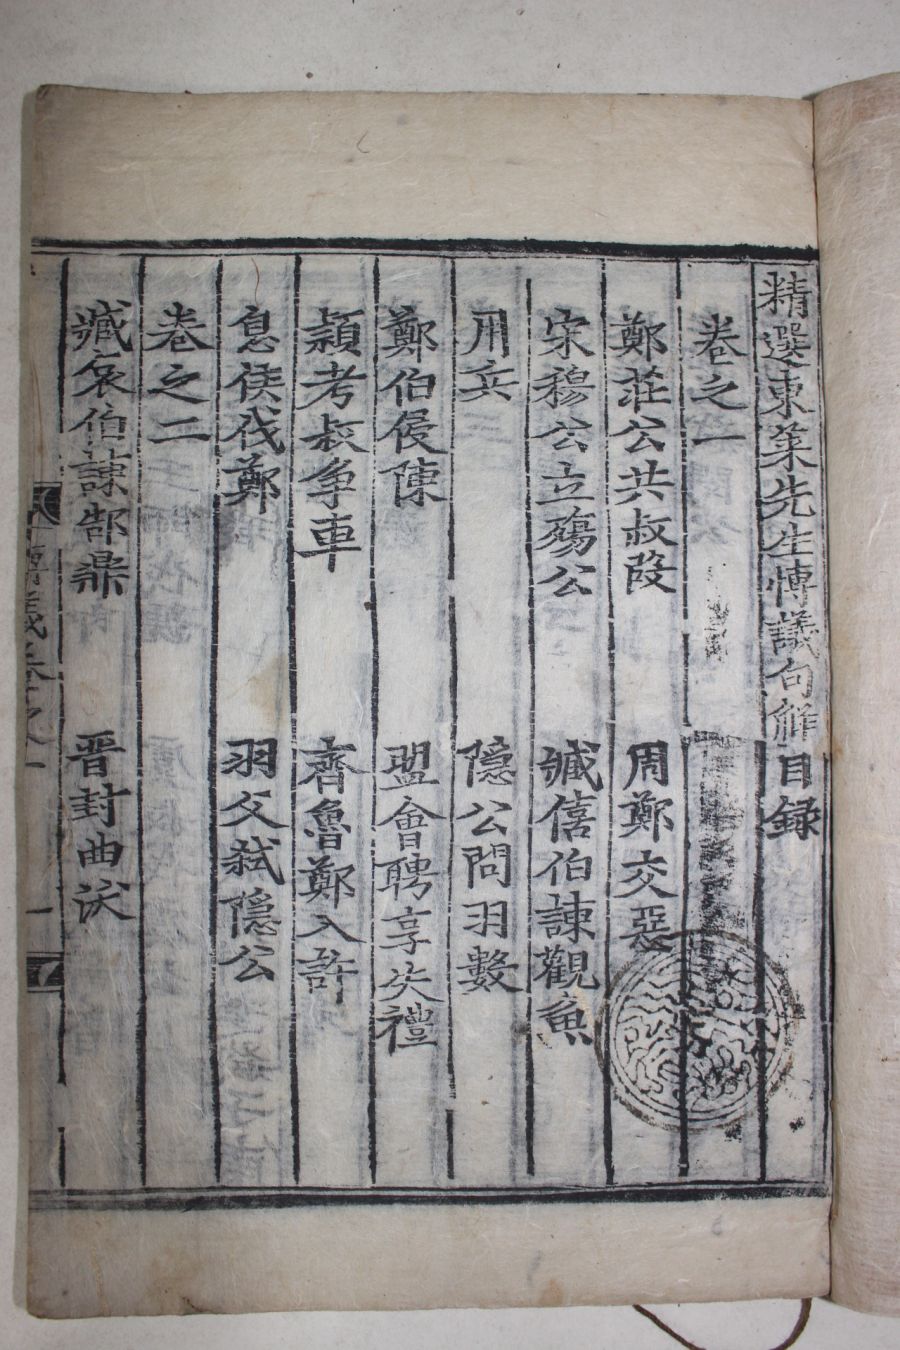 精選東萊先生博議句解目録
卷之一
鄭莊公共叔段 周鄭交惡
宋穆公立殤公 臧僖伯諫觀魚
用兵 隱公問羽數
鄭伯侵陳 盟會聘享失禮
潁考叔爭車 齊魯鄭入許
息侯伐鄭 羽父弑隱公
卷之二
臧哀伯諫郜鼎 晋封曲沃